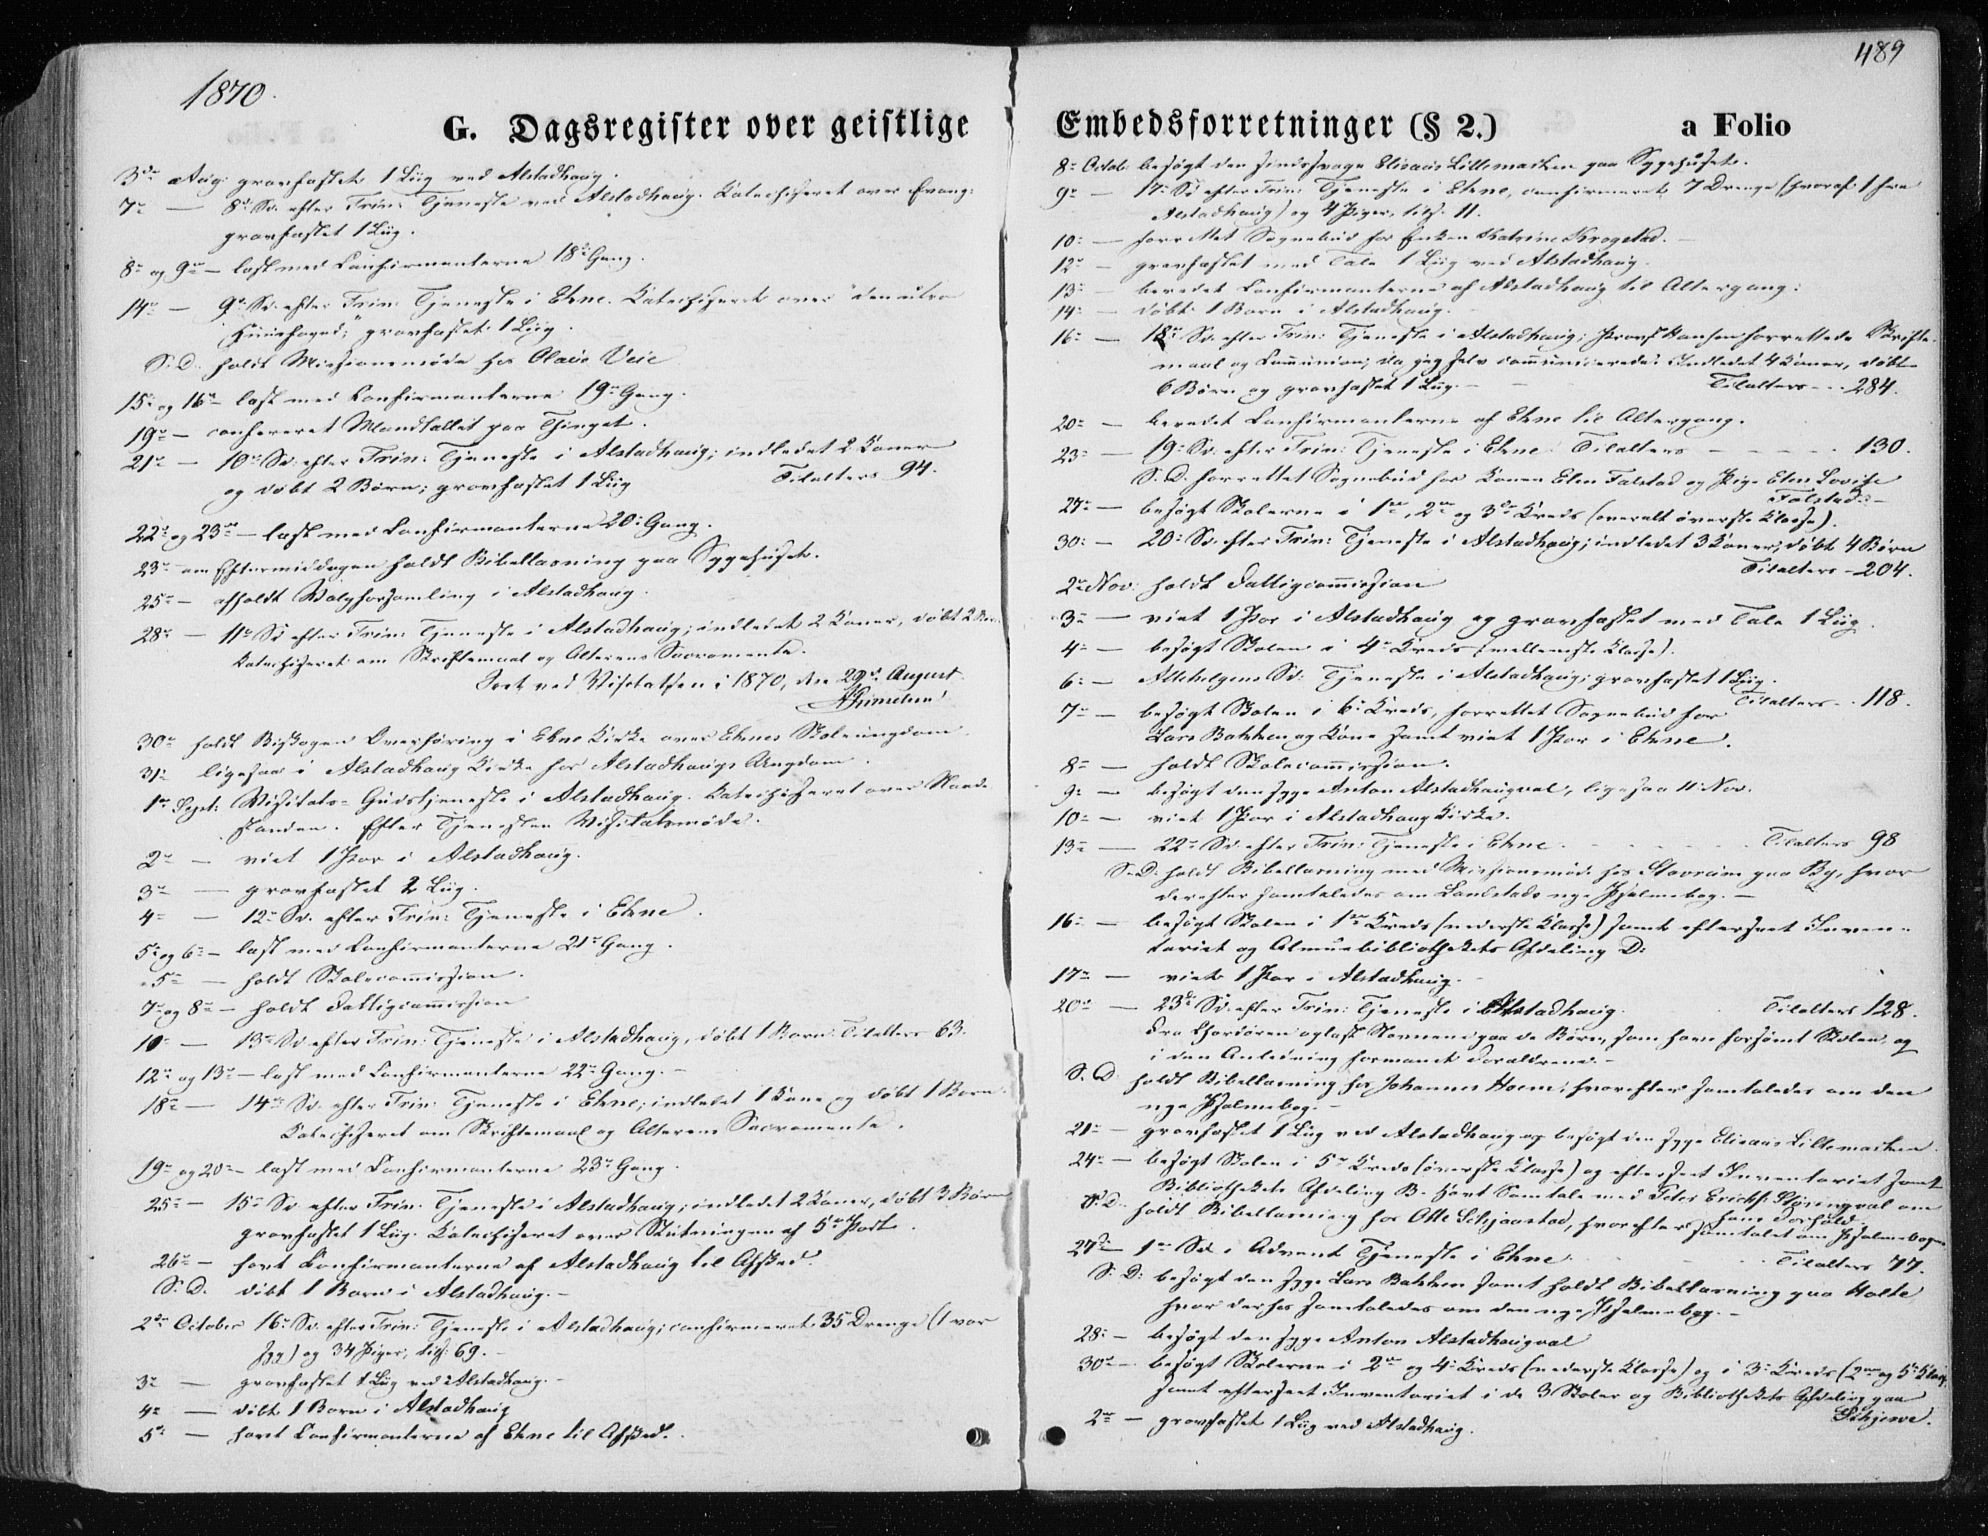 1870.
G. Dagsregister over geistlige
3die Aug. gravfæstet 1 Liig ved Alstadhaug.
7de — 8de Sd. efter Trin: Tjeneste ved Alstadhaug. Katechiseret over Evang:
gravfæstet 1 Liig.
8de og 9de — læst med Confirmanterne 18de Gang.
14de — 9de Sd. efter Trin: Tjeneste i Ekne. Katechiseret over "den utro
Huusfoged;" gravfæstet 1 Liig.
S. D. holdt Missionsmøde hos Olaus Veie
15de og 16de læst med Confirmanterne 19de Gang.
19de — confereret Mandtallet paa Thinget.
21de — 10de Sd. efter Trin: Tjeneste i Alstadhaug; indledet 2 Koner
og døbt 2 Børn; gravfæstet 1 Liig Tilalters 94.
22de og 23de — læst med Confirmanterne 20de Gang.
23de om Eftermiddagen holdt Bibellæsning paa Sygehuset.
25de — afholdt Valgforsamling i Alstadhaug.
28de — 11te Sd efter Trin: Tjeneste i Alstadhaug; indledet 2 Koner, døbt 2 Børn
Katechiseret om Skriftemaal og Alterens Sacramente.
Seet ved Visitatsen i 1870, den 29de August.
30te holdt Biskopen Overhøring i Ekne Kirke over Eknes Skoleungdom.
31te ligesaa i Alstadhaug Kirke for Alstadhaugs Ungdom.
1ste Sept: Visitats-Gudstjeneste i Alstadhaug. Katechiseret over Naade-
standen. Efter Tjenesten Visitatsmøde.
2den — viet 1 Par i Alstadhaug.
3die — gravfæstet 2 Liig.
4de — 12te Sd. efter Trin: Tjeneste i Ekne.
5te og 6te — læst med Confirmanterne 21de Gang.
5te — holdt Skolecommission.
7de og 8de — holdt Fattigcommission
10de — 13de Sd efter Trin: Tjeneste i Alstadhaug, døbt 1 Barn. Tilalters 63.
12te og 13de — læst med Confirmanterne 22de Gang. —
18de — 14de Sd. efter Trin: Tjeneste i Ekne; indledet 1 Kone og døbt 1 Barn.
Katechiseret om Skriftemaal og Alterens Sacramente.
19de og 20de — læst med Confirmanterne 23de Gang.
25de — 15de Sd. efter Trin. Tjeneste i Alstadhaug; indledet 2 Koner, døbt 3 Børn
gravfæstet 1 Liig. Katechiseret over Slutningen af 5te Part.
26de — havt Confirmanterne af Alstadhaug til Afsked.
S. D. døbt 1 Barn i Alstadhaug. —
2den October 16de Sd. efter Trin: Tjeneste i Alstadhaug; confirmeret 35 Drenge (1 var
syg) og 34 Piger, tils: 69. —
3die — gravfæstet 1 Liig ved Alstadhaug. —
4de — døbt 1 Barn i Alstadhaug
5te — havt Confirmanterne af Ekne til Afsked.
489
Embedsforretninger (§ 2.) a Folio
8de Octob. besøgt den sindssvage Elisæus Lillemarken paa Sygehuset.
9de — 17de Sd efter Trin: Tjeneste i Ekne, confirmeret 7 Drenge (hvoraf 1 fra
Alstadhaug) og 4 Piger, tils. 11.
10de — forrettet Sognebud for Enken Katrine Krogstad. —
12te — gravfæstet med Tale 1 Liig ved Alstadhaug.
13de — beredet Confirmanterne af Alstadhaug til Altergang.
14de — døbt 1 Barn i Alstadhaug. —
16de — 18de Sd. efter Trin: Tjeneste i Alstadhaug; Provst Hansen forrettede Skrifte-
maal og Communion; da jeg selv communicerede. Indledet 4 Koner, døbt
6 Børn og gravfæstet 1 Liig. — Tilalters - - 284.
20de — beredet Confirmanterne af Ekne til Altergang.
23de — 19de Sd. efter Trin: Tjeneste i Ekne Tilalters — — — 130.
S. D. forrettet Sognebud for Konen Elen Falstad og Pige Elen Lovise
Falstad. —
27de — besøgt Skolerne i 1ste, 2den og 3die Kreds (overalt øverste Klasse).
30te — 20de Sd. efter Trin: Tjeneste i Alstadhaug; indledet 3 Koner, døbt 4 Børn
Tilalters — 204.
2den Nov. holdt Fattigcommission
3die — viet 1 Par i Alstadhaug og gravfæstet med Tale 1 Liig.
4de — besøgt Skolen i 4de Kreds (mellemste Klasse).
6te — Allehelgens Sd. Tjeneste i Alstadhaug; gravfæstet 1 Liig.
Tilalters - 118.
7de — besøgt Skolen i 6te Kreds, forrettet Sognebud for
Lars Bakken og Kone samt viet 1 Par i Ekne.
8de — holdt Skolecommission.
9de — besøgt den syge Anton Alstadhaugval, ligesaa 11 Nov.
10de — viet 1 Par i Alstadhaug Kirke.
13de — 22de Sd efter Trin: Tjeneste i Ekne — Tilalters 98
S. D. holdt Bibellæsning med Missionsmøde hos Stavrum paa By, hvor
derefter samtaledes om Landstads nye Psalmebog. —
16de — besøgt Skolen i 1ste Kreds (nederste Klasse) samt efterseet Inven-
tariet og Almuebibliothekets Afdeling D.
17de — viet 1 Par i Alstadhaug. —
20de — 23de Sd. efter Trin: Tjeneste i Alstadhaug. Tilalters 128.
Fra Chordøren oplæst Navnene paa de Børn, som have forsømt Skolen, og
i den Anledning formanet Forældrene. —
S. D. holdt Bibellæsning hos Johannes Hoem; hvorefter samtaledes om den
nye Psalmebog. —
21de — gravfæstet 1 Liig ved Alstadhaug og besøgt den syge Elisæus Lillemarken.
24de — besøgt Skolen i 5te Kreds (øverste Klasse) og efterseet Inventariet samt
Bibliothekets Afdeling B. havt Samtale med Peter Ericks. om
hans Forhold.
S. D. holdt Bibellæsning hos Otte Schjærstad, hvorefter samtalet om Psalmebogen
27de — 1ste Sd. i Advent Tjeneste i Ekne — — Tilalters 77.
S. D. besøgt den syge Lars Bakken samt holdt Bibellæsning paa Holte,
hvor derhos samtaledes om den nye Psalmebog. —
28de — besøgt den syge Anton Alstadhaugval
30te — besøgt Skolerne i 2den og 4de Kreds (nederste Klasse) og i 3die Kreds (2den og 5te Klasse
samt efterseet Inventariet i de 3 Skoler og Bibliothekets Afdeling paa
Schjerve.
2den — gravfæstet 1 Liig ved Alstadhaug.